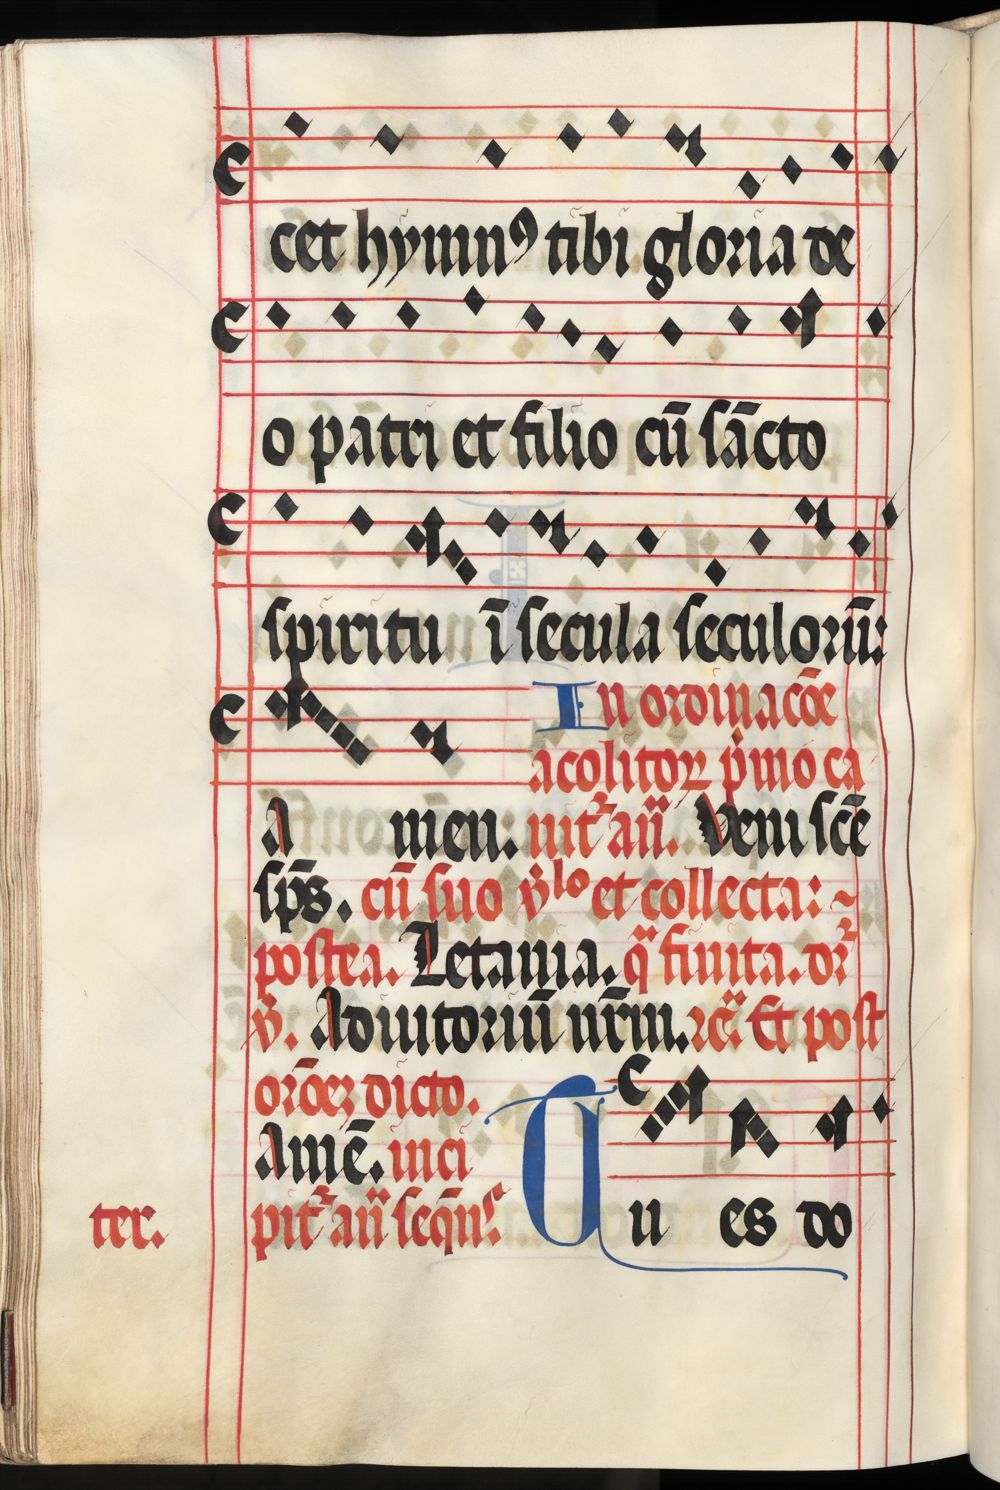 cet hymnꝰ tibi gloria de
o pātri et filio cū sācto
spiritu ī secula seculoꝛū:
In ordinacōe
acolitoꝝ pͥmo ca
A men. nitᷣ añ. Veni scē
sps̄. cū suo v̊lo et collecta:~
postea. Letania. qᷓ finita. dꝛ̄
v̊. Adiutoriū nr̄m. rẽ Et post
orōēꝫ dicto.
Amē. inci
ter. pitᷣ añ seqn̄s.
Tu es do